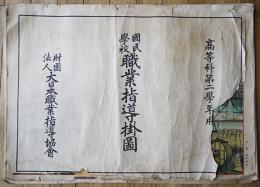 高等科第二學年用
國民學校 職業指導掛圖
財團法人 大日本職業指導協會